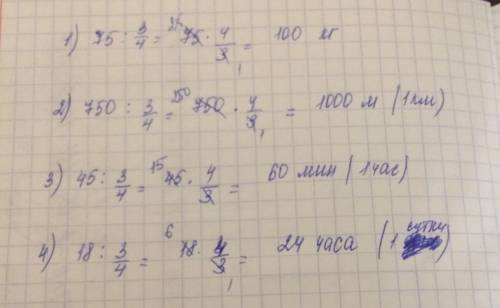 1) 75 : 3/4 = 75 · 4/3 = 100 кг
2) 750 : 3/4 = 750 · 4/3 = 1000 м (1 км)
3) 45 : 3/4 = 45 · 4/3 = 60 мин (1 час)
4) 18 : 3/4 = 18 · 4/3 = 24 часа (1 сутки)